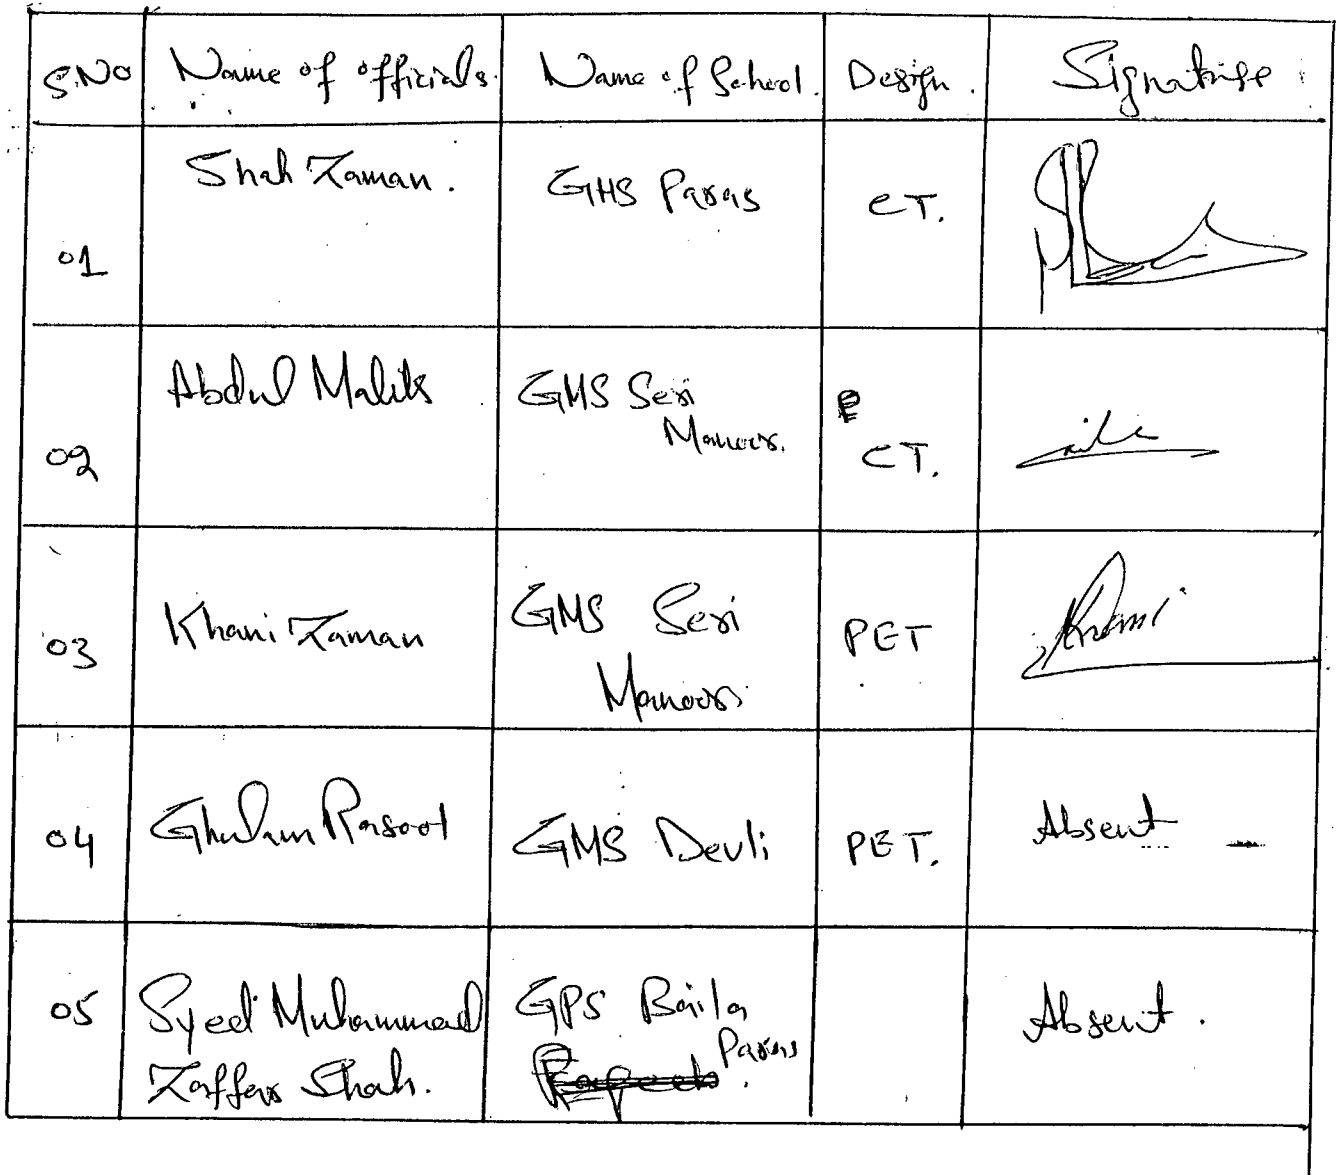 S.NO Name of officials. Name of School. Design. Signature
01 Shah Zaman. GHS Paras CT.
02 Abdul Malik GMS Seri CT.
Manoor.
03 Khani Zaman GMS Seri PET Khani
Manoor.
04 Ghulam Rasool GMS Devli PET. Absent
05 Syed Muhammad GPS Baila Absent.
Zaffar Shah. Paras